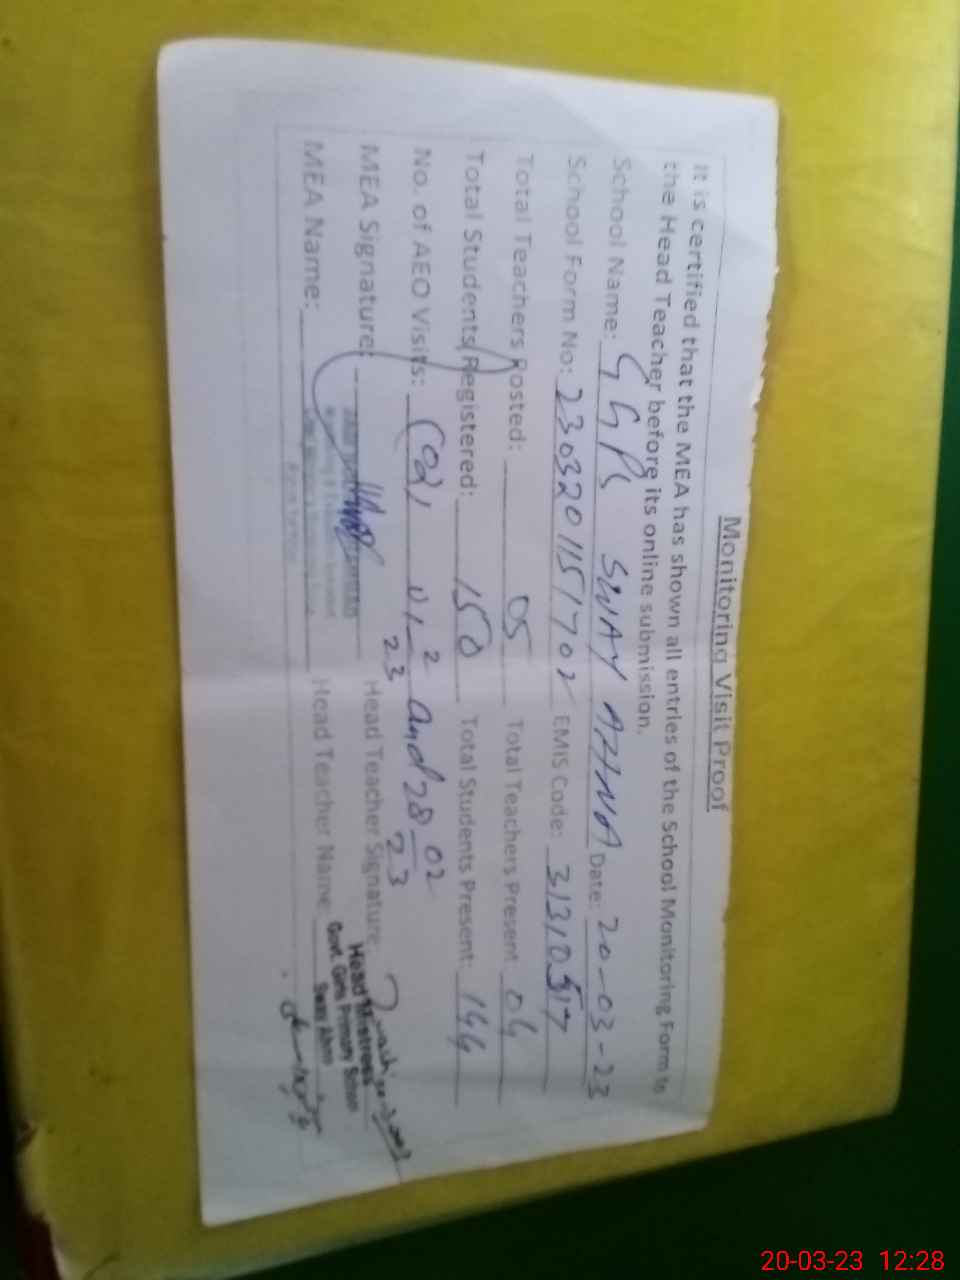 Monitoring Visit Proof
It is certified that the MEA has shown all entries of the School Monitoring Form to
the Head Teacher before its online submission.
School Name: GGPS SWAY AZHNA Date: 20-03-23
School Form No: 2303201151702 EMIS Code: 31310517
Total Teachers Posted: 05 Total Teachers Present 04
Total Students Registered: 150 Total Students Present: 144
No. of AEO Visits: (02) 01-2-23 and 28-02-23
MEA Signature: Head Teacher Signature
MEA Name: Head Teacher Name
Head Mistress
Govt. Girls Primary School
20-03-23 12:28